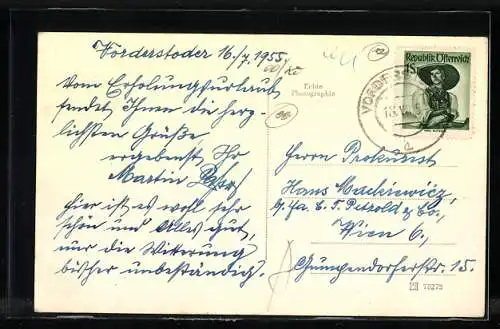 Vorderstoder 16./7. 1955
Vom Erholungsurlaub
sendet Ihnen die herz-
lichsten Grüße
ergebenst Ihr
Martin
hier ist es wohl sehr
schön und Alles gut,
nur die Witterung
bisher unbeständig.
Echte
Photographie
Republik Österreich
1S
VORDER
Herrn Prokurist
Hans Mackiewicz,
p. Fa. E. T. Petzold & Co.,
Wien 6.,
Gumpendorferstr. 15.
78275